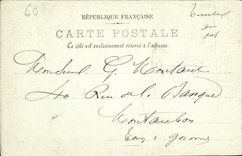 60
RÉPUBLIQUE FRANÇAISE
CARTE POSTALE
Ce côté est exclusivement réservé à l'adresse.
Monsieur G. Montaut
40 Rue de la Banque
Montauban